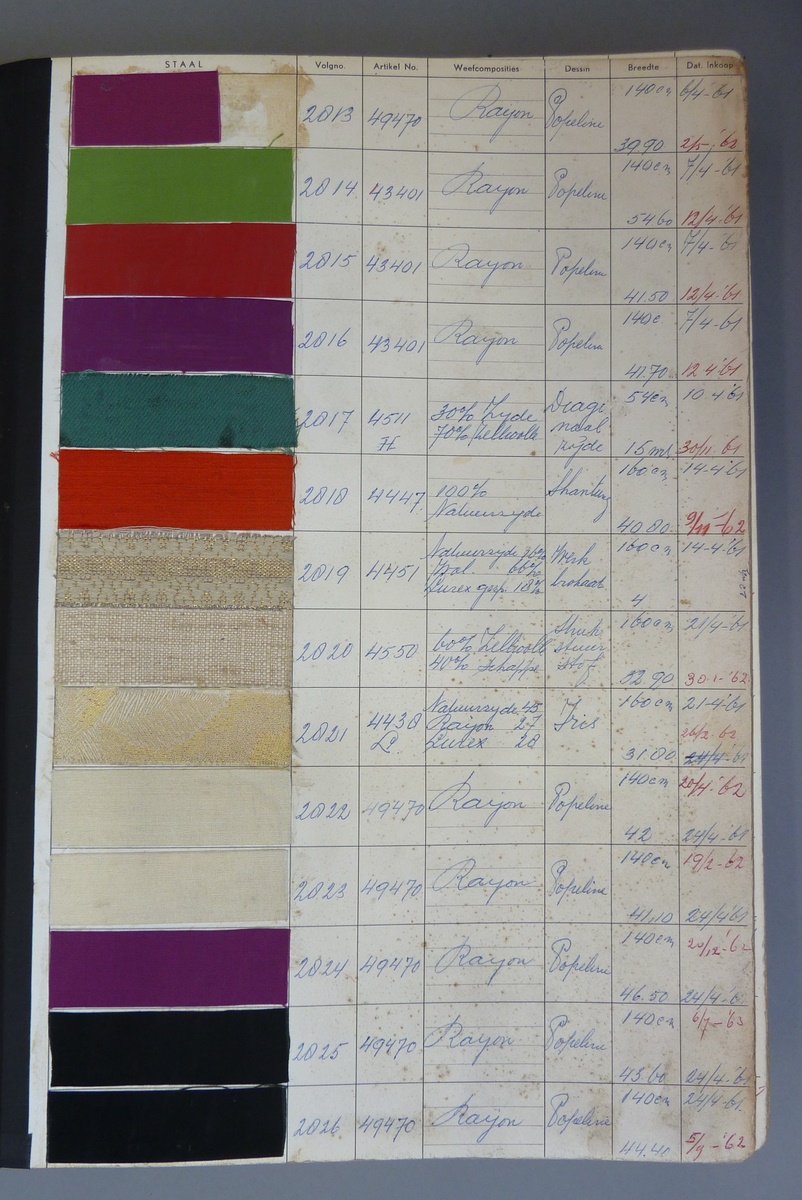 STAAL Volgno. Artikel No. Weefcomposities Dessin Breedte Dat. Inkoop
2013 49470 Rayon Popeline 140cm 6/4-61
39.90 2/5-'62
2014 43401 Rayon Popeline 140cm 7/4-61
54.60 12/4-'61
2015 43401 Rayon Popeline 140cm 7/4-61
41.50 12/4-'61
2016 43401 Rayon Popeline 140c. 7/4-61
41.70 12 4'61
2017 4511 30% Zyde Diagi 54cm 10-4'61
70% Zellwolle naal
15 mt 30/11-61
2018 4447 100% Shantung 160cm 14-4'61
Natuurzyde 40.80
2019 4451 Natuurzyde 16% Werk 160cm 14-4'61
Wol 66% brokaat
Lurex gesp. 18% 4
2020 4550 60% Zellwoll Struk 160cm 21/4-61
40% Schappe stuur
stof 32.90 30-1-'62
2021 4430 Natuurzyde 45 160cm 21-4-61
Rayon 27 26/2-62
Lurex 28 31.80 24/4-61
2022 49470 Rayon Popeline 140cm 20/4-'62
42 24/4-61
2023 49470 Rayon Popeline 140cm 19/2-62
41.10 24/4'61
2024 49470 Rayon Popeline 140cm 20/12-'62
46.50 24/4-6
2025 49470 Rayon Popeline 140cm 6/7-'63
43.60 24/4-'61
2026 49470 Rayon Popeline 140cm 24/4-61
44.40 5/9-'62